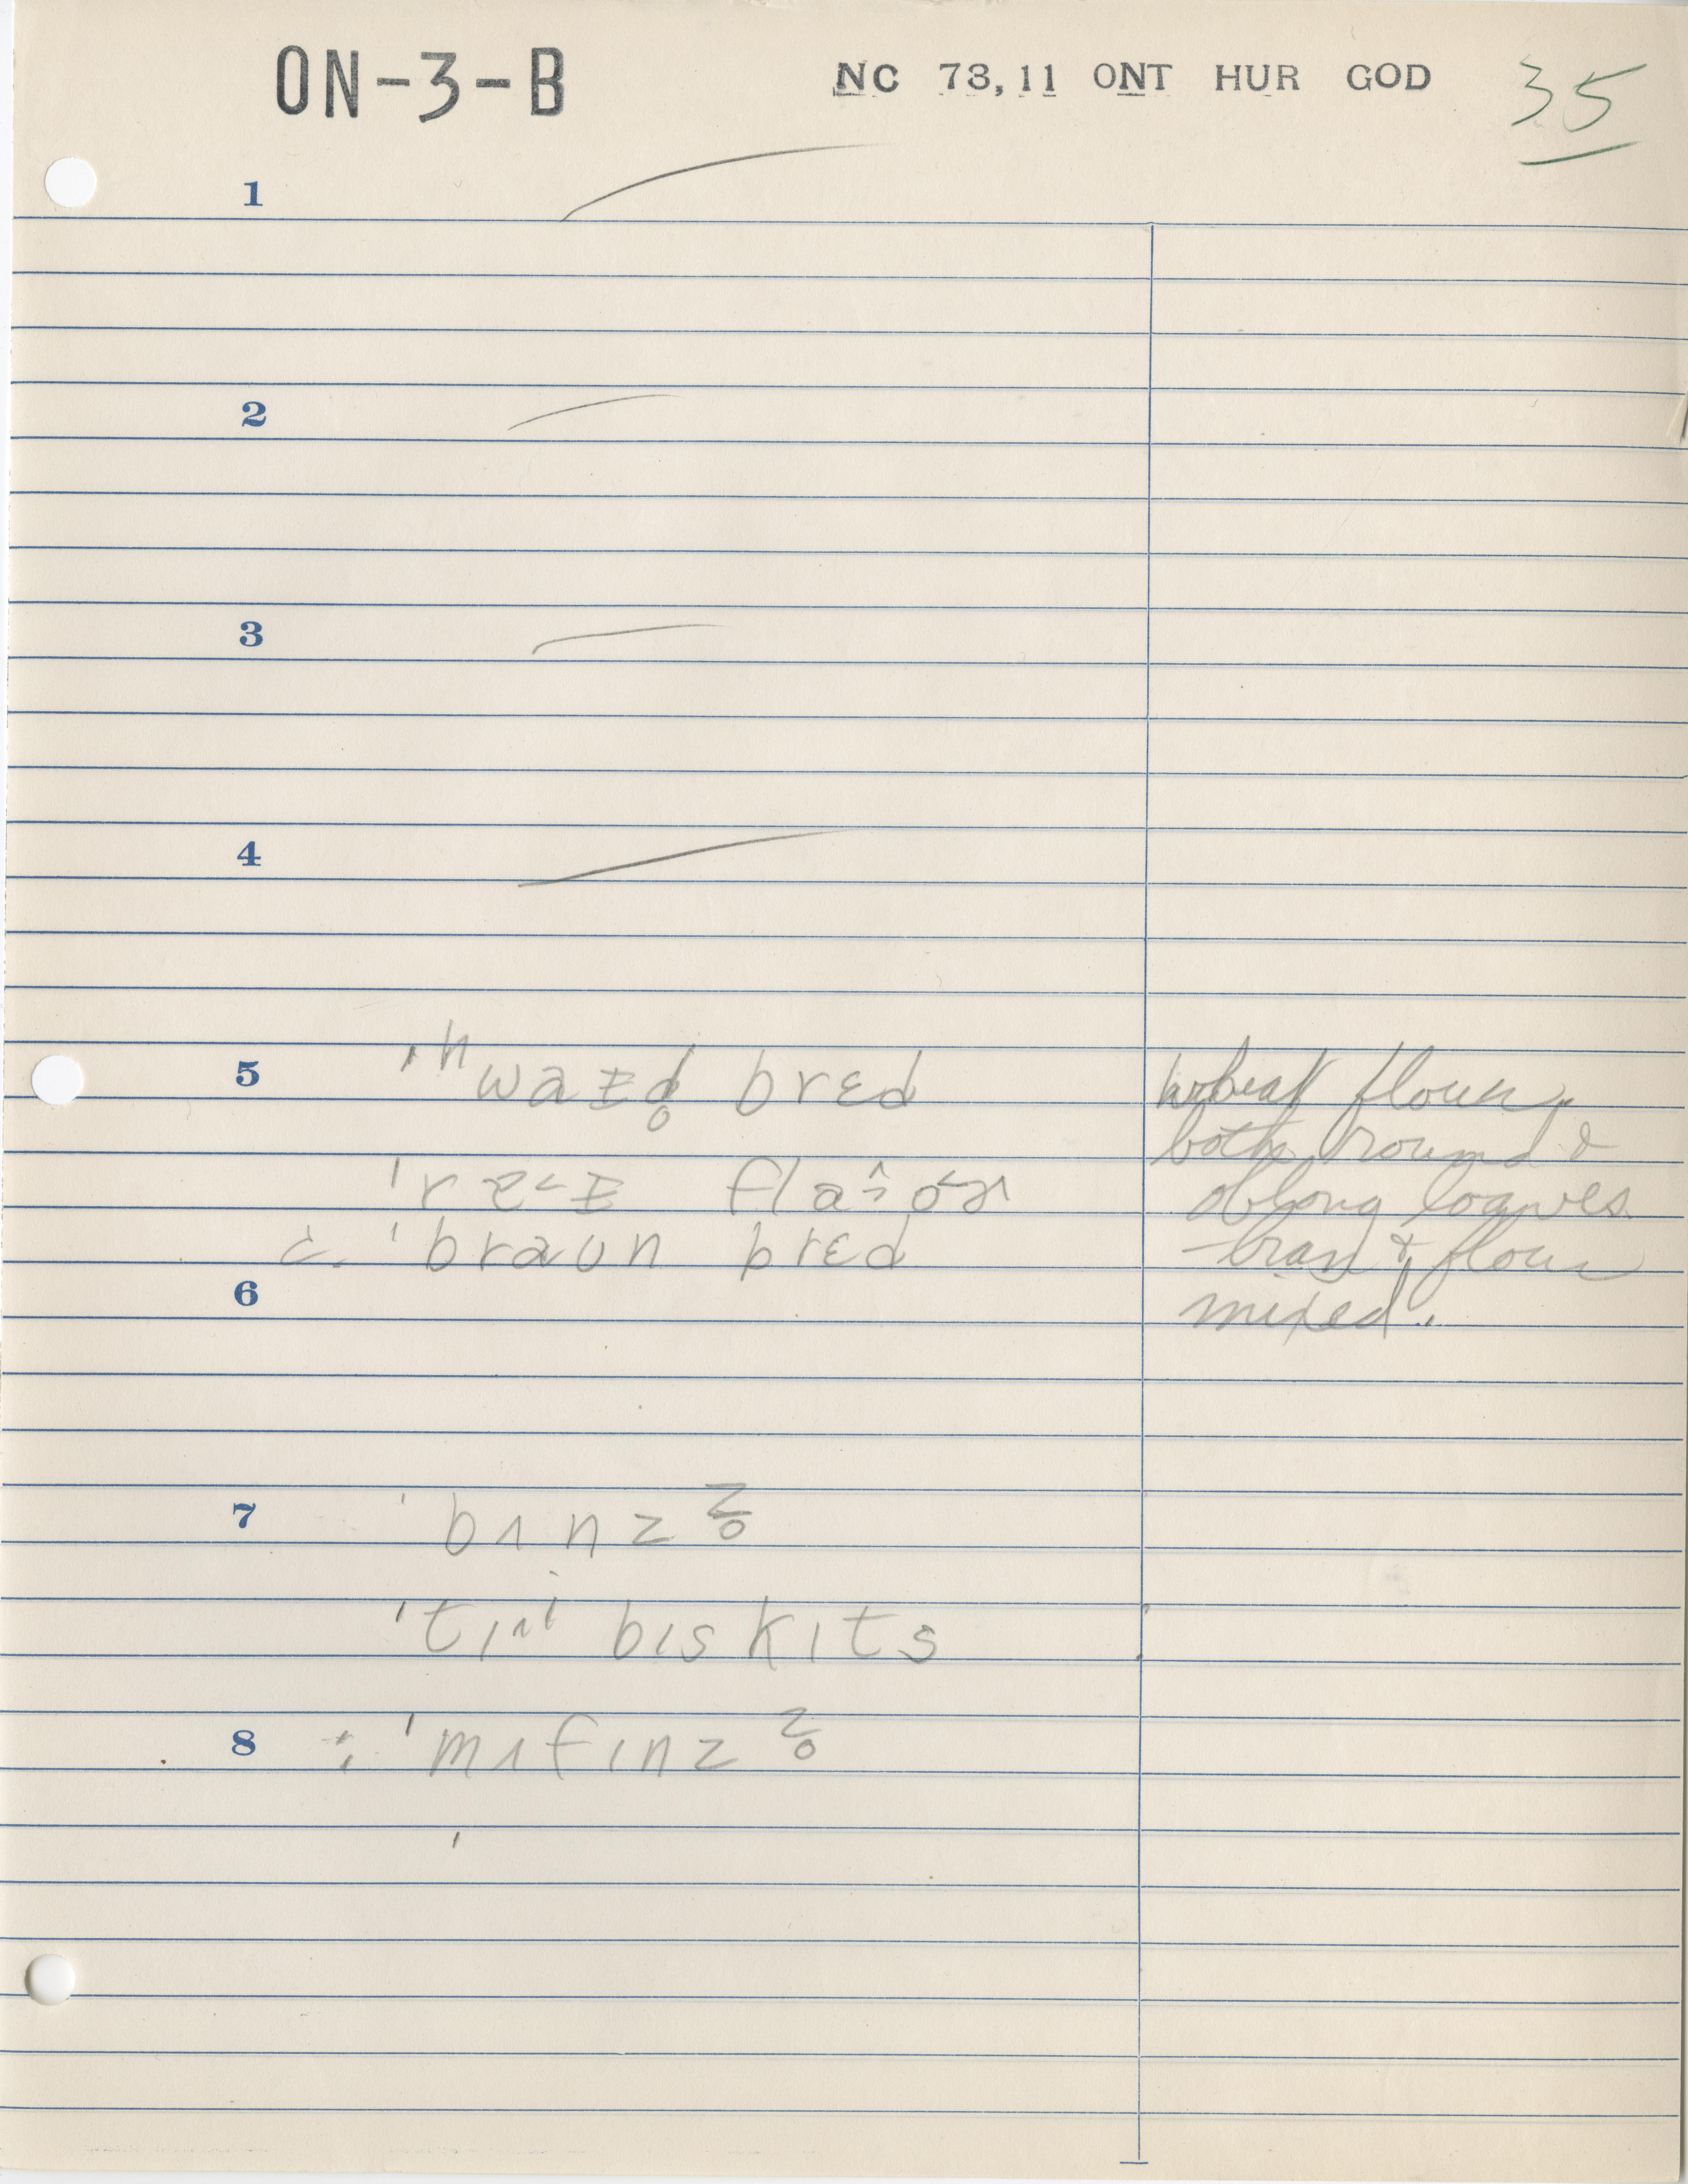 ON-3-B NC 73,11 ONT HUR GOD 35
1
2
3
4
5 bred wheat flour,
both round &
oblong loaves
c. ˈbraʊn bred -bran & flour
6 mixed.
7 ˈbʌnz
ˈtɪnɪ bɪskɪts
8 ˈmʌfɪnz